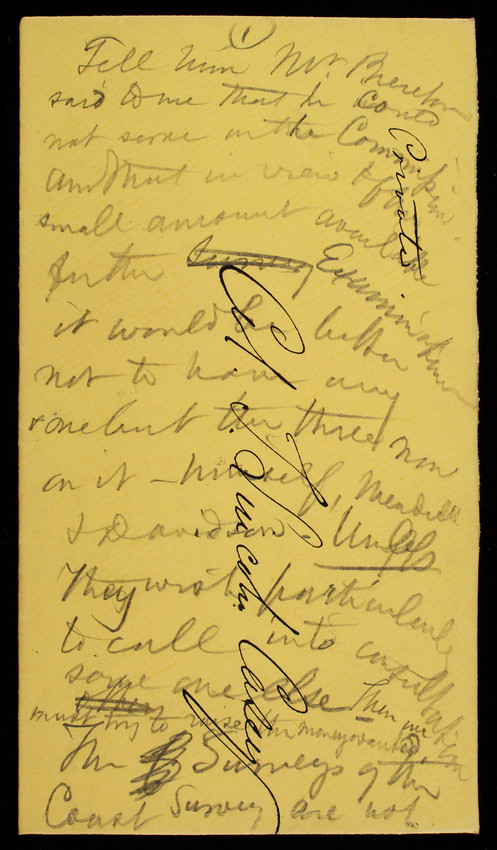 1
Tell him Mr. Brereton
said to me that he could
not serve on the Commission
and that in view of the
small amount available
for the Survey Examination
it would be better
not to have any
one but the three now
on it – himself, Mendell
& Davidson. Unless
They wish particularly
to call into consultation
some one else Then we
must try to raise the money wanted
The Surveys of the
Coast Survey are not
Private
Col. S. Lincoln. Carey